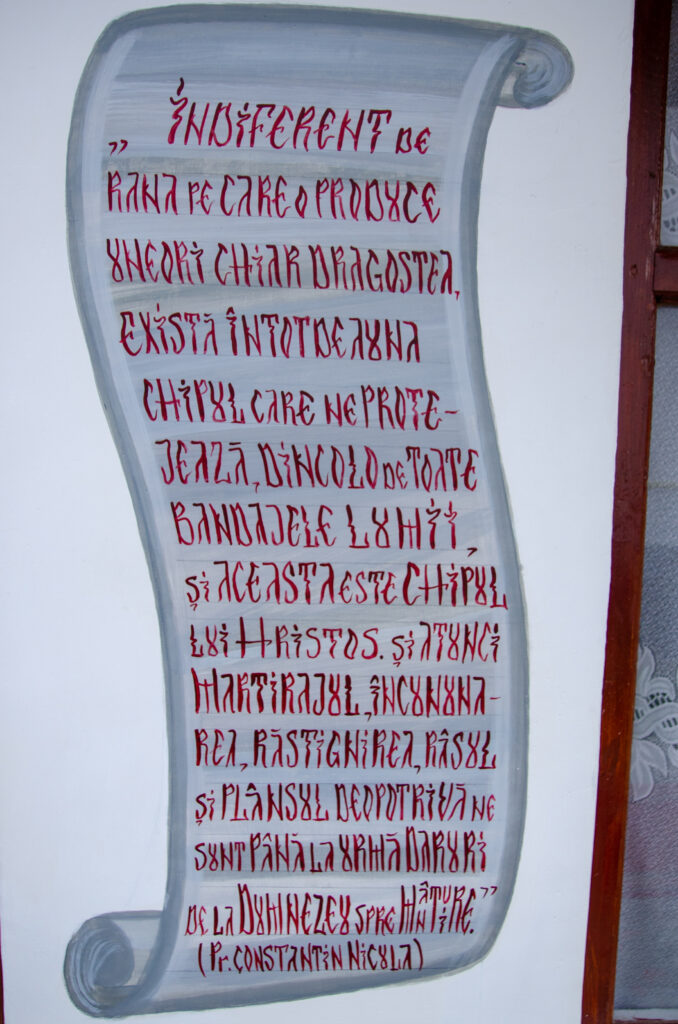 „ INDIFERENT DE
RANA PE CARE O PRODUCE
UNEORI CHIAR DRAGOSTEA,
EXISTĂ ÎNTOTDEAUNA
CHIPUL CARE NE PROTE-
JEAZĂ, DINCOLO DE TOATE
BANDAJELE LUMII,
ȘI ACEASTA ESTE CHIPUL
LUI HRISTOS. ȘI ATUNCI
MARTIRAJUL, ÎNCUNUNA-
REA, RĂSTIGNIREA, RÂSUL
ȘI PLÂNSUL DEOPOTRIVĂ NE
SUNT PÂNĂ LA URMĂ DARURI
DE LA DUMNEZEU SPRE MÂNTUIRE.”
(Pr. CONSTANTIN NICULA)